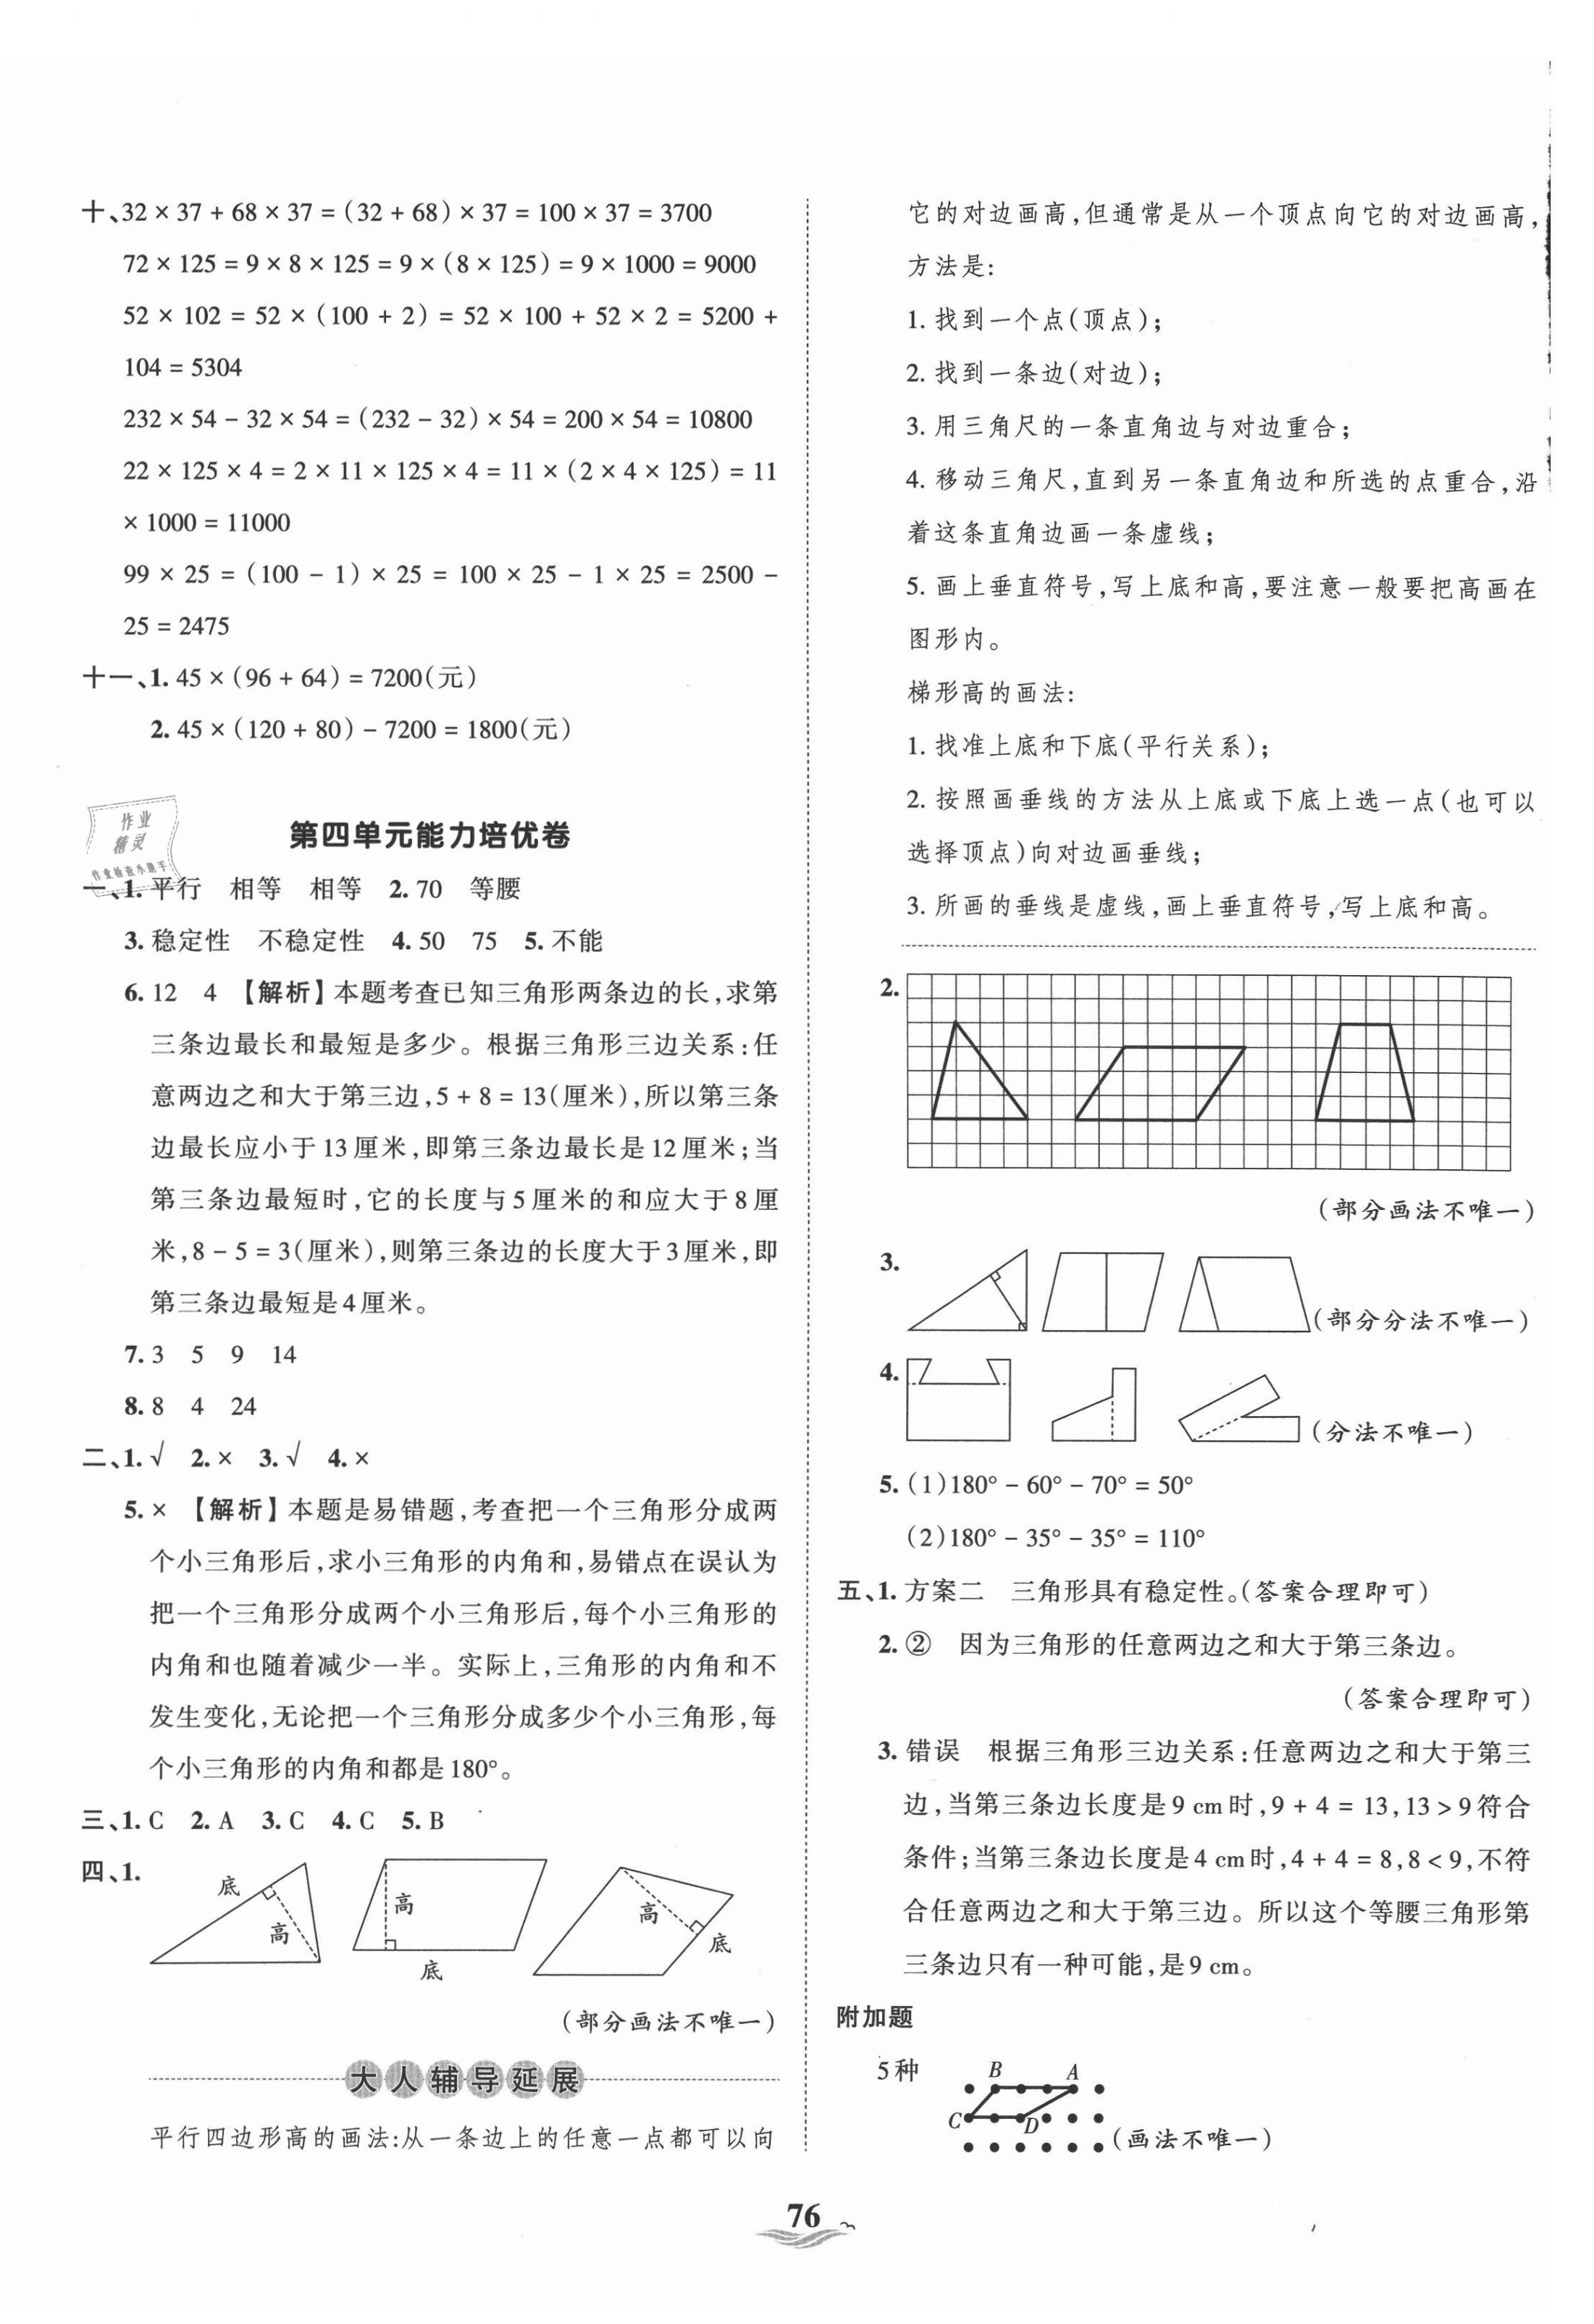 十、32 × 37 + 68 × 37 = (32 + 68) × 37 = 100 × 37 = 3700
72 × 125 = 9 × 8 × 125 = 9 × (8 × 125) = 9 × 1000 = 9000
52 × 102 = 52 × (100 + 2) = 52 × 100 + 52 × 2 = 5200 +
104 = 5304
232 × 54 − 32 × 54 = (232 − 32) × 54 = 200 × 54 = 10800
22 × 125 × 4 = 2 × 11 × 125 × 4 = 11 × (2 × 4 × 125) = 11
× 1000 = 11000
99 × 25 = (100 − 1) × 25 = 100 × 25 − 1 × 25 = 2500 −
25 = 2475
十一、1. 45 × (96 + 64) = 7200(元)
2. 45 × (120 + 80) − 7200 = 1800(元)
作业
精灵
作业检查小助手
第四单元能力培优卷
一、1. 平行 相等 相等 2. 70 等腰
3. 稳定性 不稳定性 4. 50 75 5. 不能
6. 12 4 【解析】本题考查已知三角形两条边的长,求第
三条边最长和最短是多少。根据三角形三边关系:任
意两边之和大于第三边,5 + 8 = 13(厘米),所以第三条
边最长应小于13厘米,即第三条边最长是12厘米;当
第三条边最短时,它的长度与5厘米的和应大于8厘
米,8 − 5 = 3(厘米),则第三条边的长度大于3厘米,即
第三条边最短是4厘米。
7. 3 5 9 14
8. 8 4 24
二、1. √ 2. × 3. √ 4. ×
5. × 【解析】本题是易错题,考查把一个三角形分成两
个小三角形后,求小三角形的内角和,易错点在误认为
把一个三角形分成两个小三角形后,每个小三角形的
内角和也随着减少一半。实际上,三角形的内角和不
发生变化,无论把一个三角形分成多少个小三角形,每
个小三角形的内角和都是180°。
三、1. C 2. A 3. C 4. C 5. B
四、1.
底 高
高 底
高 底
(部分画法不唯一)
大人辅导延展
平行四边形高的画法:从一条边上的任意一点都可以向
它的对边画高,但通常是从一个顶点向它的对边画高,
方法是:
1. 找到一个点(顶点);
2. 找到一条边(对边);
3. 用三角尺的一条直角边与对边重合;
4. 移动三角尺,直到另一条直角边和所选的点重合,沿
着这条直角边画一条虚线;
5. 画上垂直符号,写上底和高,要注意一般要把高画在
图形内。
梯形高的画法:
1. 找准上底和下底(平行关系);
2. 按照画垂线的方法从上底或下底上选一点(也可以
选择顶点)向对边画垂线;
3. 所画的垂线是虚线,画上垂直符号,写上底和高。
2.
(部分画法不唯一)
3.
(部分分法不唯一)
4.
(分法不唯一)
5. (1)180° − 60° − 70° = 50°
(2)180° − 35° − 35° = 110°
五、1. 方案二 三角形具有稳定性。(答案合理即可)
2. ② 因为三角形的任意两边之和大于第三条边。
(答案合理即可)
3. 错误 根据三角形三边关系:任意两边之和大于第三
边,当第三条边长度是9 cm时,9 + 4 = 13,13 > 9符合
条件;当第三条边长度是4 cm时,4 + 4 = 8,8 < 9,不符
合任意两边之和大于第三边。所以这个等腰三角形第
三条边只有一种可能,是9 cm。
附加题
5种
B A
C D
(画法不唯一)
76